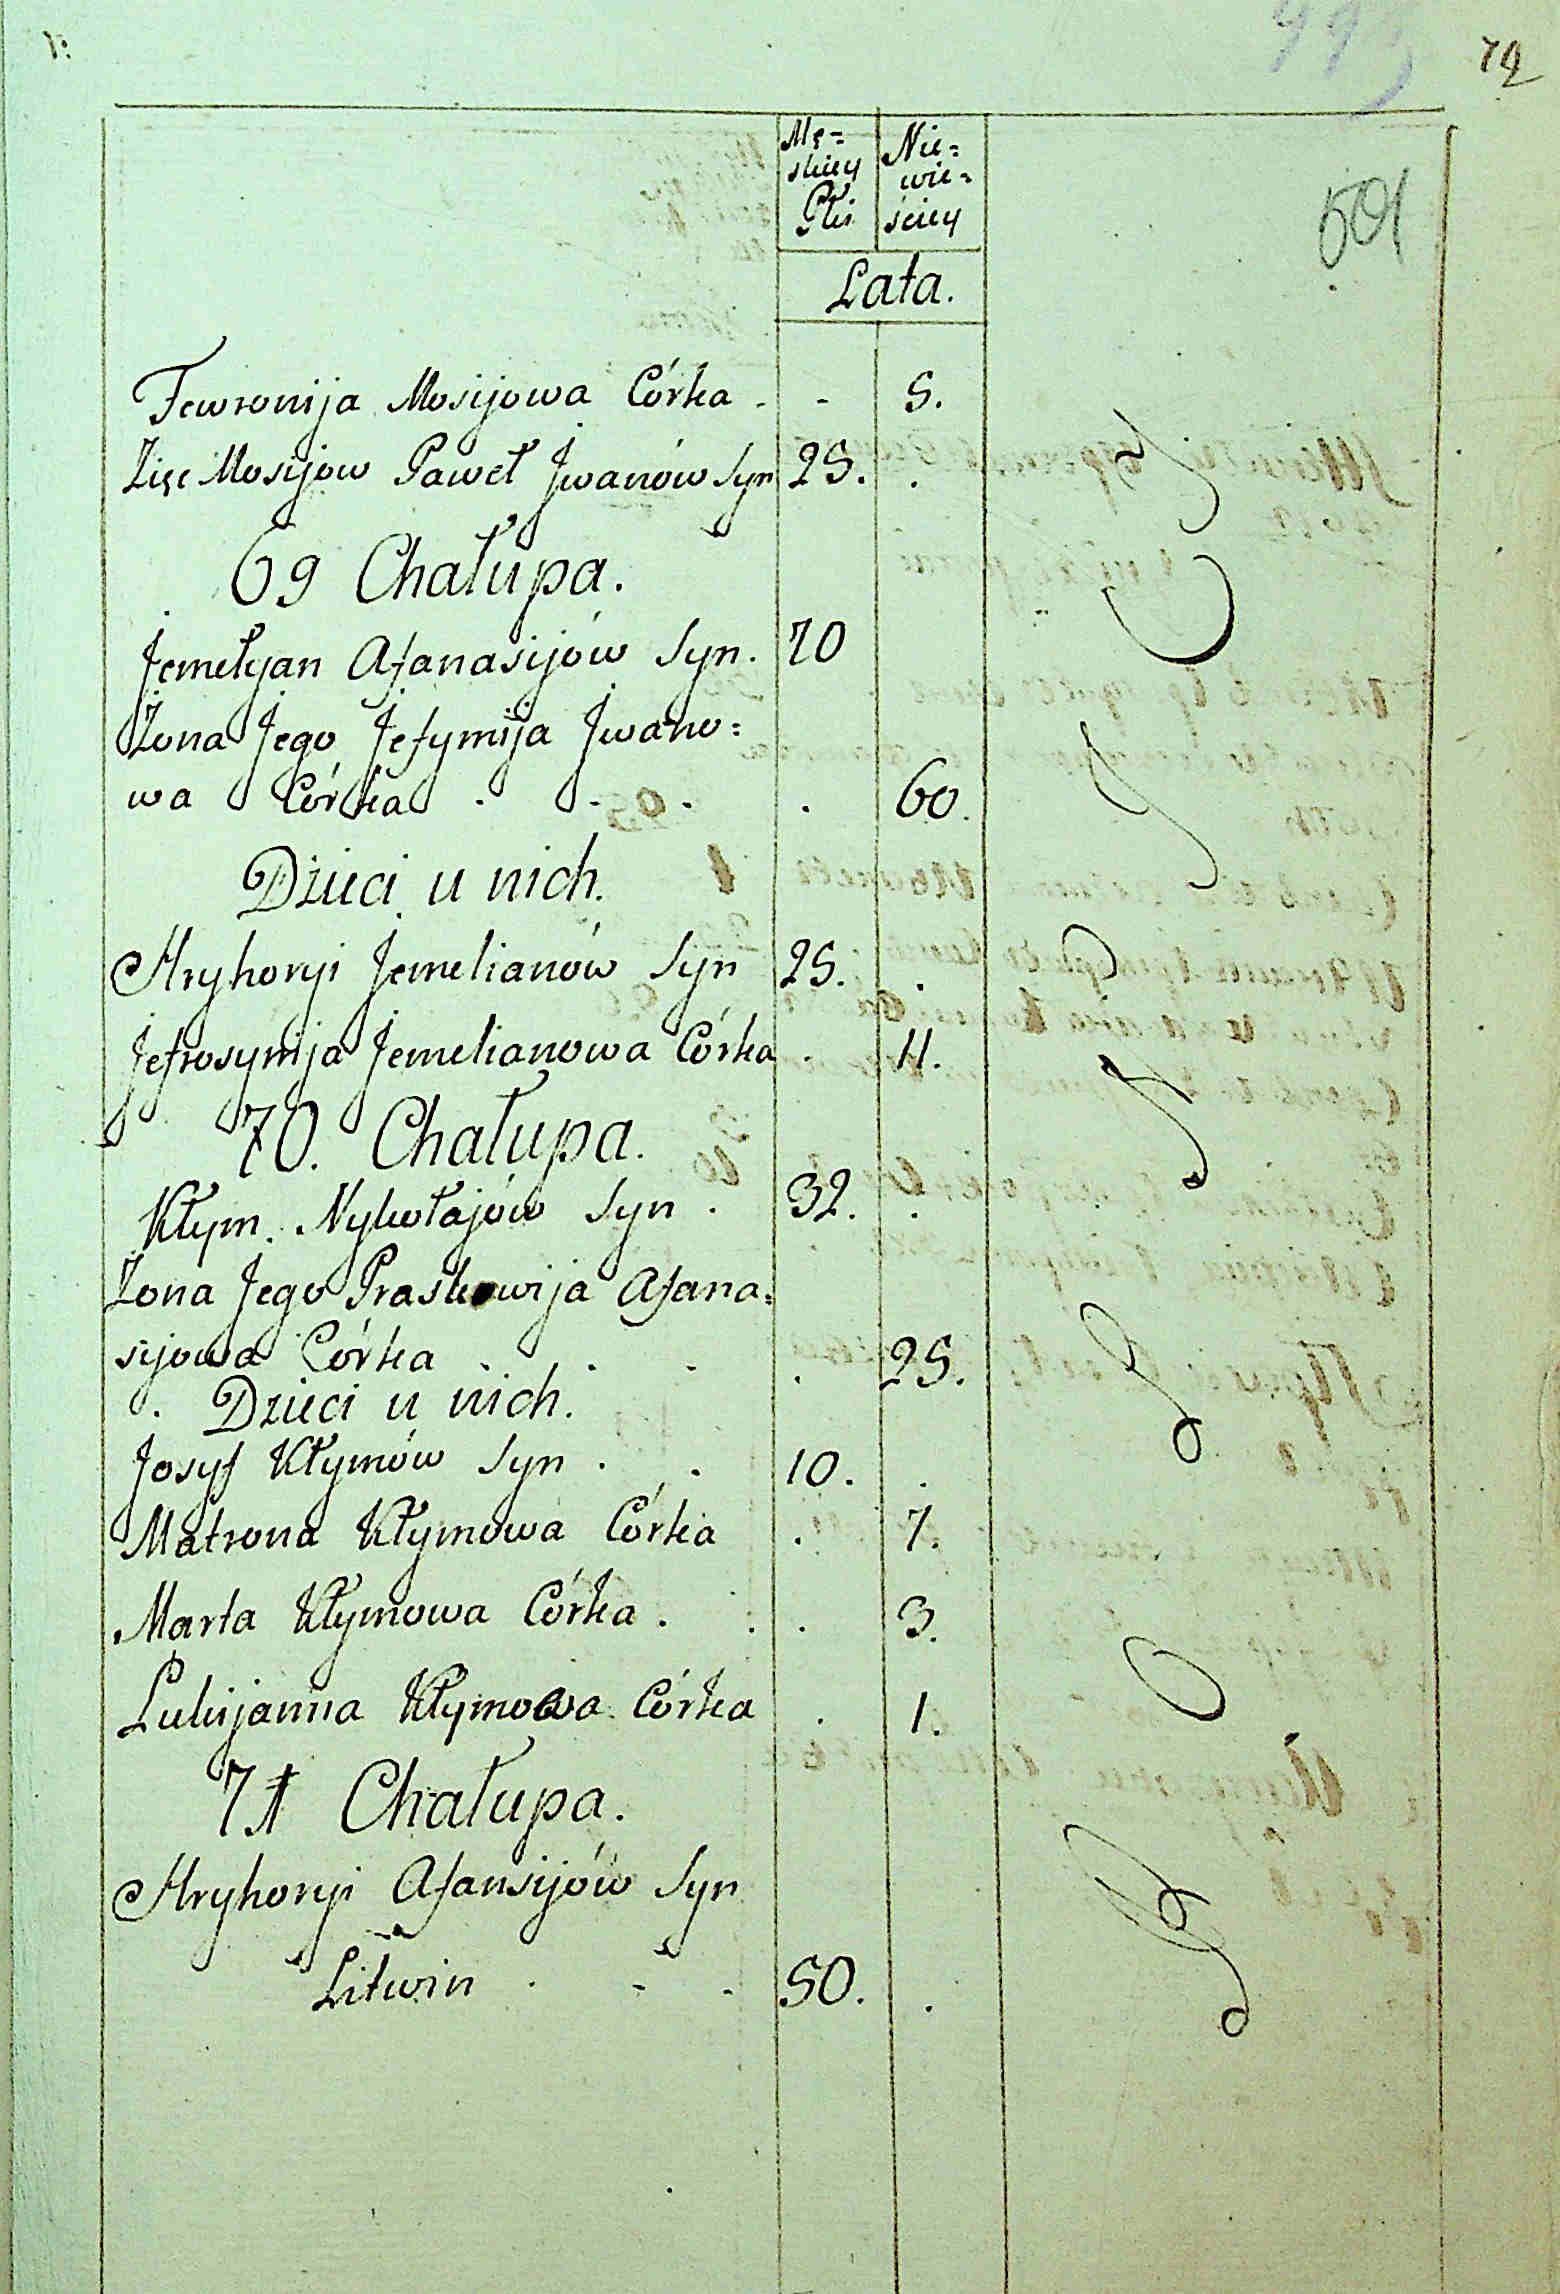 72
501
Mę=
skiey
Płci
Nie=
wie=
ściey
Lata.
Fewronija Mosijowa Córka - - 5.
Zięć Mosijow Paweł Jwanów Syn 25. .
69 Chałupa.
Jemełyan Afanasijów Syn. 70
Żona Jego Jefymija Jwano=
wa Córka . - . . 60.
Dzieci u nich.
Hryhoryi Jemelianów Syn 25. .
Jefrosynija Jemelianowa Córka . 11.
70. Chałupa.
Kłym. Nykołajów Syn . 32. .
Żona Jego Praskowija Afana=
sijowa Córka . . - . 25.
. Dzieci u nich.
Josyf Kłymów Syn . . 10. .
Matrona Kłymowa Córka . 7.
Marta Kłymowa Córka . . . 3.
Lukijanna Kłymowa Córka . 1.
71 Chałupa.
Hryhoryi Afansijów Syn
Litwin . - . 50. .